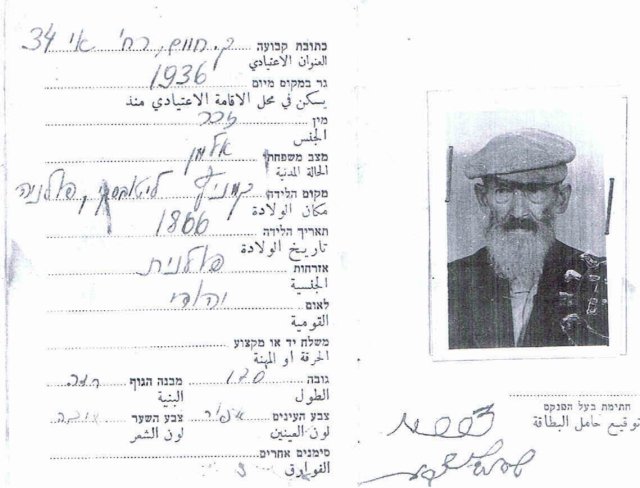 כתובת קבועה ק. חיים, רח' אי 34
العنوان الاعتيادي
גר במקום מיום 1936
يسكن في محل الاقامة الاعتيادي منذ
מין זכר
الجنس
מצב משפחתי אלמן
الحالة المدنية
מקום הלידה ליטובסק, פולניה
مكان الولادة
תאריך הלידה 1866
تاريخ الولادة
אזרחות פולנית
الجنسية
לאום יהודי
القومية
משלח יד או מקצוע
الحرفة او المهنة
גובה 170 מבנה הגוף רזה
الطول البنية
צבע העינים אפור צבע השער
لون العينين لون الشعر
סימנים אחרים
الفوارق
חתימת בעל הפנקס
توقيع حامل البطاقة